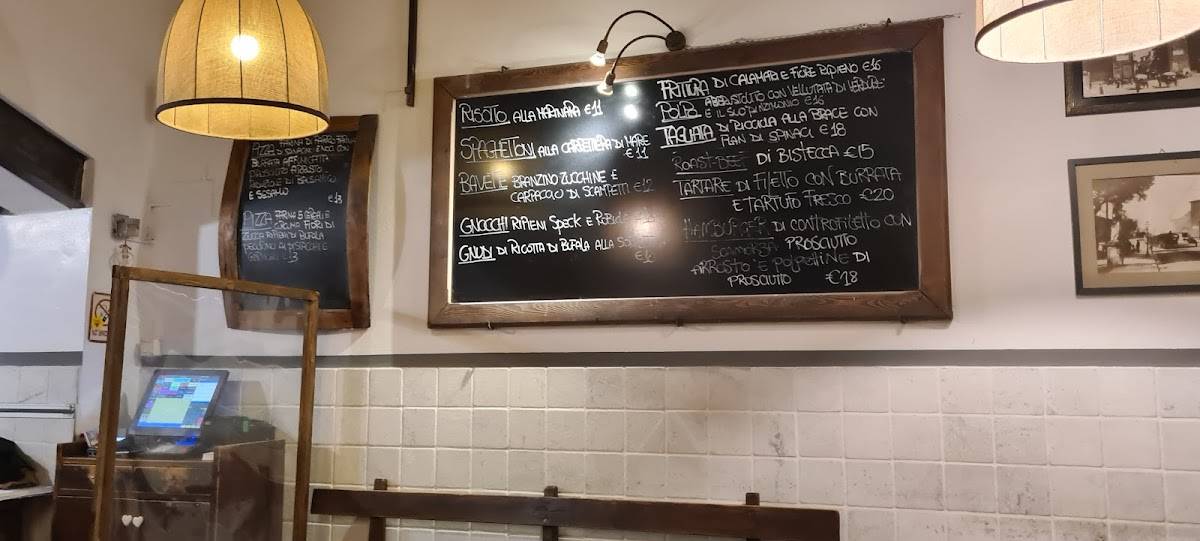 PIZZA
BURRATA AFFUMICATA
PROSCIUTTO ARROSTO
E SESAMO
€13
PIZZA FARINA 5 CEREALI E
CREMA FIORI DI
ZUCCA RIPIENI DI BUFALA
PECORINO AI PISTACCHI E
€13
RISOTTO ALLA MARINARA €11
SPAGHETTONI ALLA CARRETTIERA DI MARE
€11
BAVETTE BRANZINO ZUCCHINE E
CARPACCIO DI SCAMPETTI €12
GNOCCHI RIPIENI SPECK E
GNUDI DI RICOTTA DI BUFALA ALLA
FRITTURA DI CALAMARI E FIORE RIPIENO €16
POLPO ABBRUSTOLITO CON VELLUTATA DI VERDURE
E IL SUO PINZIMONIO €16
TAGLIATA DI RICCIOLA ALLA BRACE CON
FLAN DI SPINACI €18
ROAST-BEEF DI BISTECCA €15
TARTARE DI FILETTO CON BURRATA
E TARTUFO FRESCO €20
HAMBURGER DI CONTROFILETTO CON
SCAMORZA PROSCIUTTO
ARROSTO E POLPELLINE DI
PROSCIUTTO €18